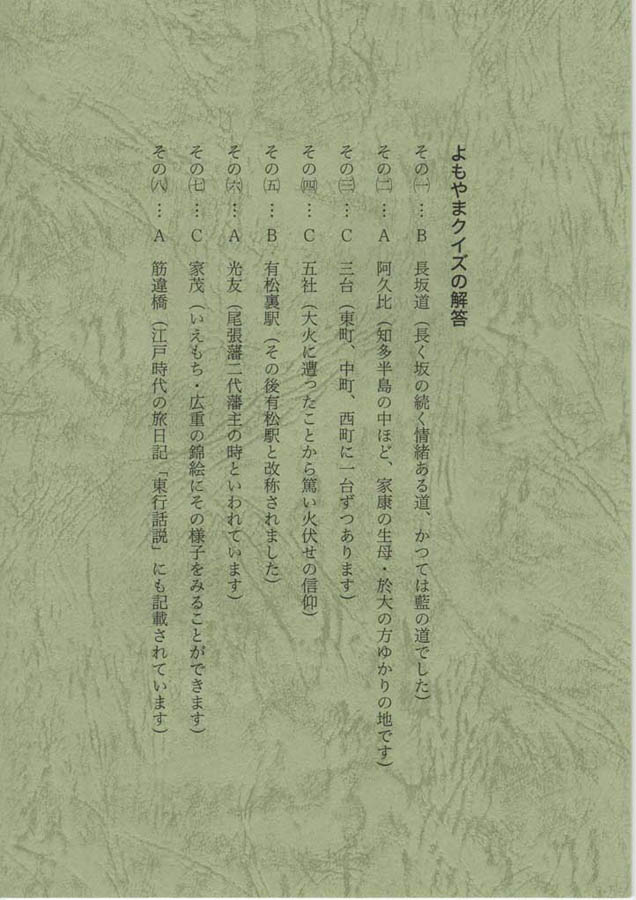 よもやまクイズの解答
その㈠ … B 長坂道(長く坂の続く情緒ある道、かつては藍の道でした)
その㈡ … A 阿久比(知多半島の中ほど、家康の生母・於大の方ゆかりの地です)
その㈢ … C 三台(東町、中町、西町に一台ずつあります)
その㈣ … C 五社(大火に遭ったことから篤い火伏せの信仰)
その㈤ … B 有松裏駅(その後有松駅と改称されました)
その㈥ … A 光友(尾張藩二代藩主の時といわれています)
その㈦ … C 家茂(いえもち・広重の錦絵にその様子をみることができます)
その㈧ … A 筋違橋(江戸時代の旅日記「東行話説」にも記載されています)